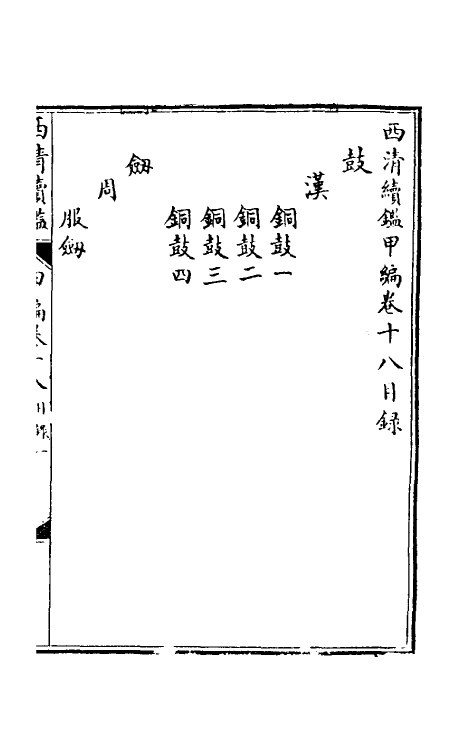 西清續鑑甲編卷十八目錄
鼓
漢
銅鼓一
銅鼓二
銅鼓三
銅鼓四
劔
周
服劔
西清續鑑
甲編卷十八目錄一